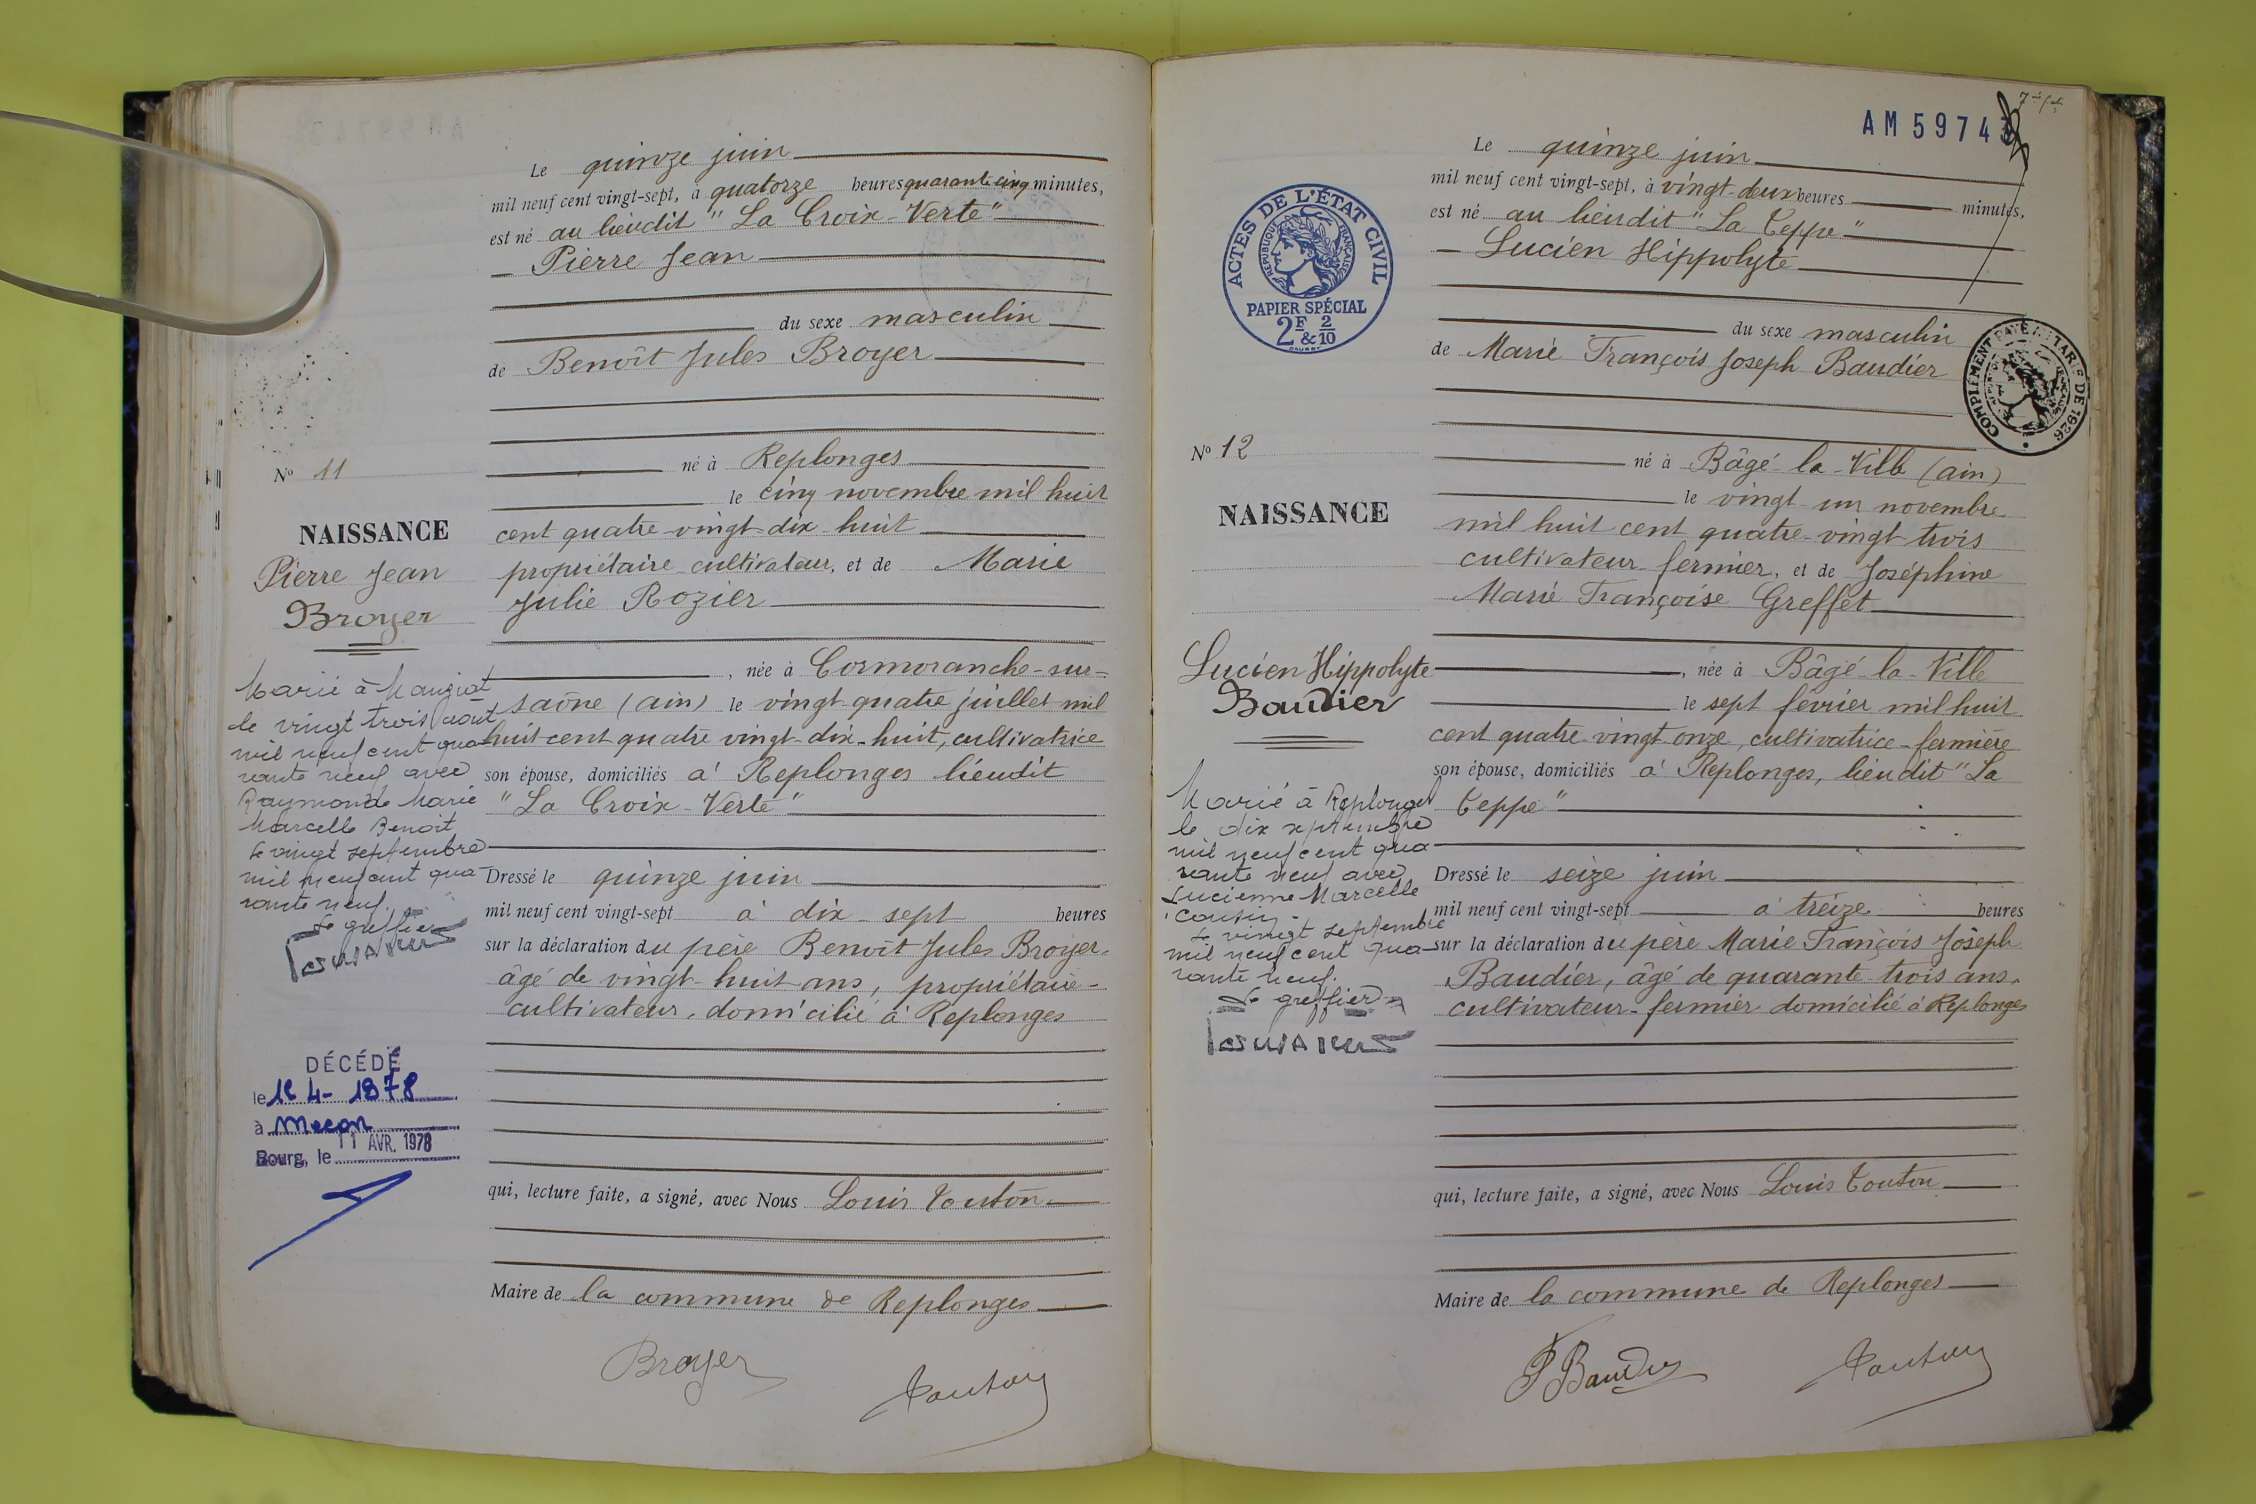 Le quinze juin
mil neuf cent vingt-sept, à quatorze heures quarante cinq minutes,
est né au lieudit "La Croix-Verte"
Pierre Jean
du sexe masculin
de Benoît Jules Broyer
né à Replonges
le cinq novembre mil huit
cent quatre-vingt-dix-huit
propriétaire-cultivateur, et de Marie
Julie Rozier
, née à Cormoranche-sur-
Saône (ain) le vingt-quatre juillet mil
huit cent quatre vingt-dix-huit, cultivatrice
son épouse, domiciliés à Replonges lieudit
"La Croix-Verte"
Dressé le quinze juin
mil neuf cent vingt-sept à dix-sept heures
sur la déclaration du père Benoît Jules Broyer
âgé de vingt-huit ans, propriétaire-
cultivateur, domicilié à Replonges
qui, lecture faite, a signé, avec Nous Louis Touton
Maire de la commune de Replonges
Broyer
Touton
No 11
NAISSANCE
Pierre Jean
Broyer
Marié à Manziat
le vingt trois août
mil neuf cent qua
rante neuf avec
Raymonde Marie
Marcelle Benoit
Le vingt septembre
mil neuf cent qua
rante neuf.
Le greffier
DÉCÉDÉ
le
à Macon
Bourg, le 11 AVR. 1978
AM 59743
ACTES DE L'ÉTAT CIVIL
RÉPUBLIQUE FRANÇAISE
PAPIER SPÉCIAL
2F & 2/10
COMPLÉMENT PAYÉ TARIF DE 1926
Le quinze juin
mil neuf cent vingt-sept, à vingt-deux heures minutes,
est né au lieudit "La Teppe"
Lucien Hippolyte
du sexe masculin
de Marie François Joseph Baudier
né à Bâgé-la-Ville (ain)
le vingt-un novembre
mil huit cent quatre-vingt-trois
cultivateur-fermier, et de Joséphine
Marie Françoise Greffet
, née à Bâgé-la-Ville
le sept février mil huit
cent quatre-vingt-onze, cultivatrice-fermière
son épouse, domiciliés à Replonges, lieudit "La
Teppe"
Dressé le seize juin
mil neuf cent vingt-sept à treize heures
sur la déclaration du père Marie François Joseph
Baudier, âgé de quarante-trois ans,
cultivateur-fermier domicilié à Replonges
qui, lecture faite, a signé, avec Nous Louis Touton
Maire de la commune de Replonges
Baudier
Touton
No 12
NAISSANCE
Lucien Hippolyte
Baudier
Marié à Replonges
le dix septembre
mil neuf cent qua
rante neuf avec
Lucienne Marcelle
Cousin.
Le vingt septembre
mil neuf cent qua
rante neuf.
Le greffier